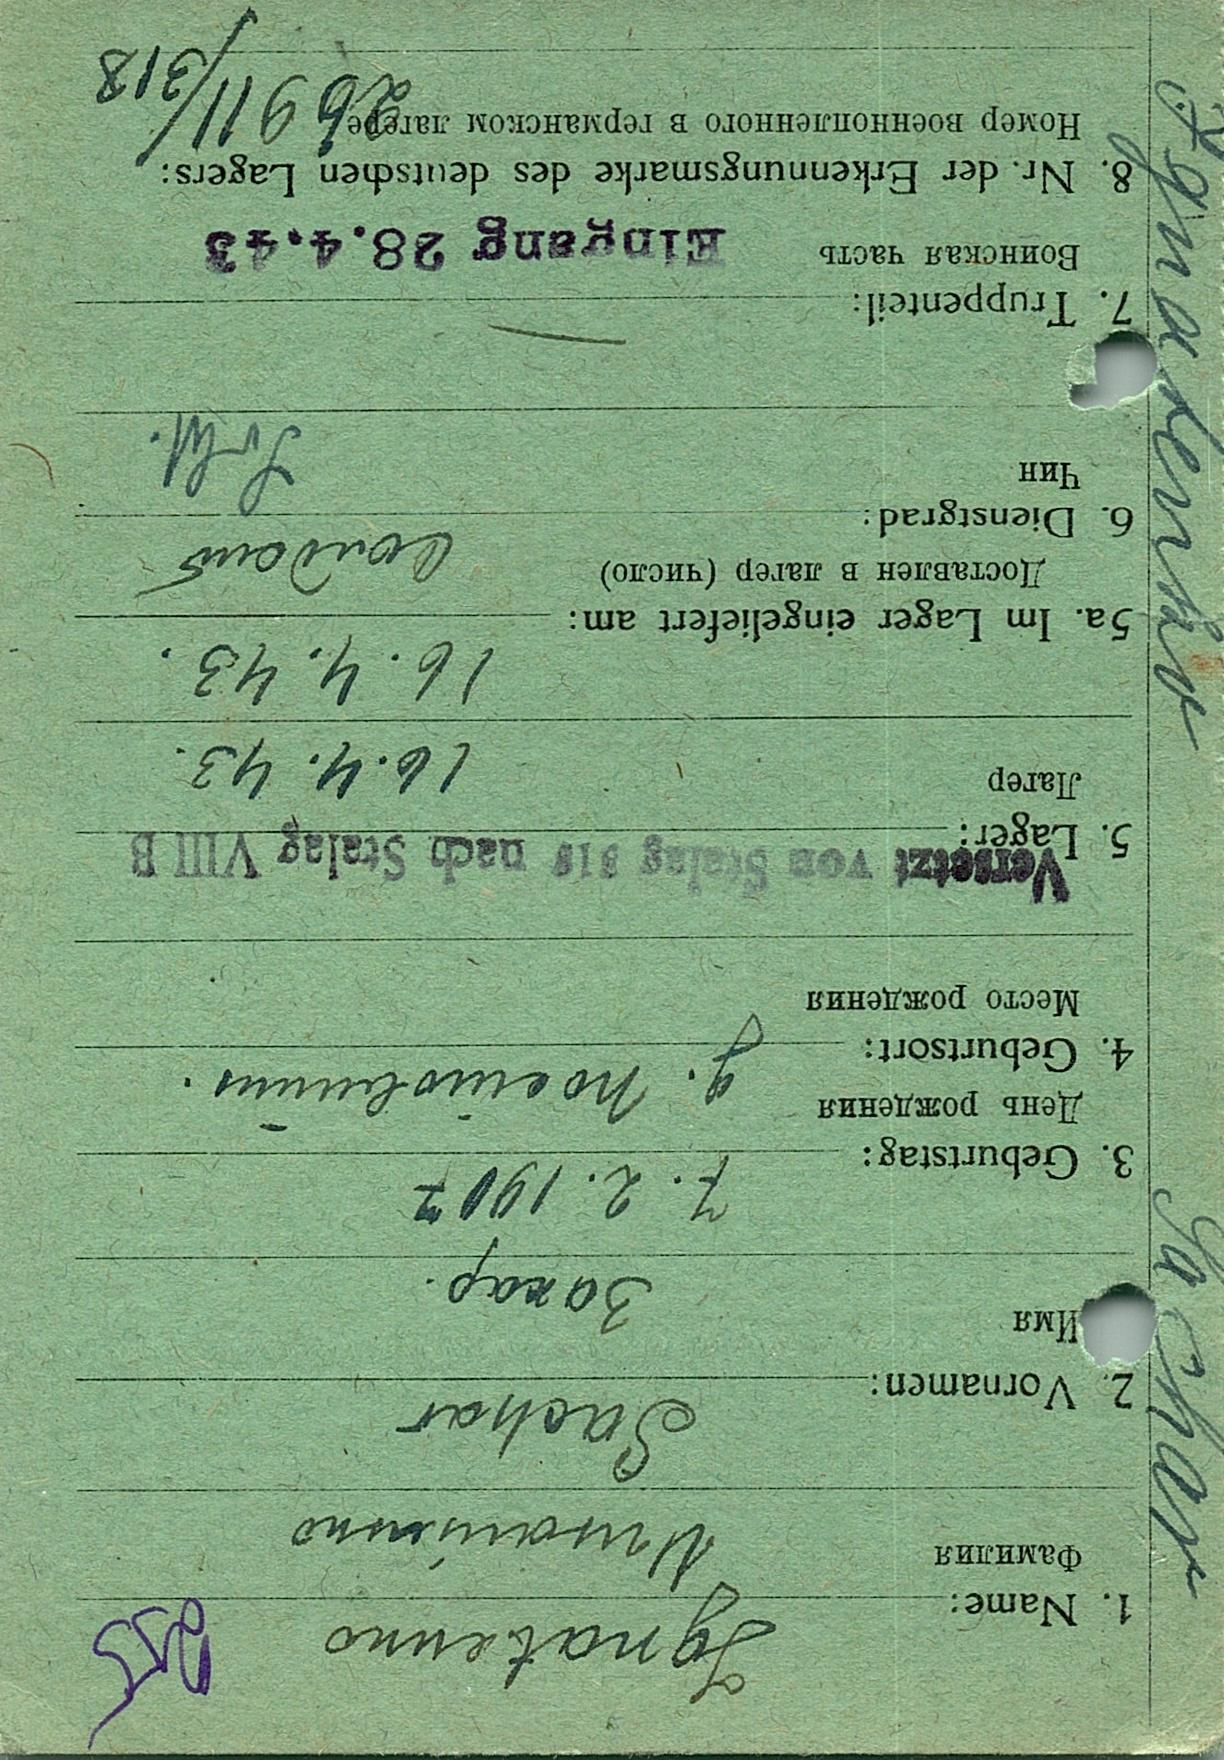 1. Name: Ignatenko
Фамилия Игнатенко
2. Vornamen: Sachar
Имя Захар.
3. Geburtstag: 7. 2. 1907
День рождения
4. Geburtsort:
Место рождения
Versetzt von Stalag 318 nach Stalag VIII B
5. Lager: 16. 4. 43.
Лагер
5a. Im Lager eingeliefert am: 16. 4. 43.
Доставлен в лагер (число)
6. Dienstgrad: Солдат
Чин
7. Truppenteil:
Воинская часть Eingang 28.4.43
8. Nr. der Erkennungsmarke des deutschen Lagers:
Номер военнопленного в германском лагере 26911/318
Ignatenko Sachar